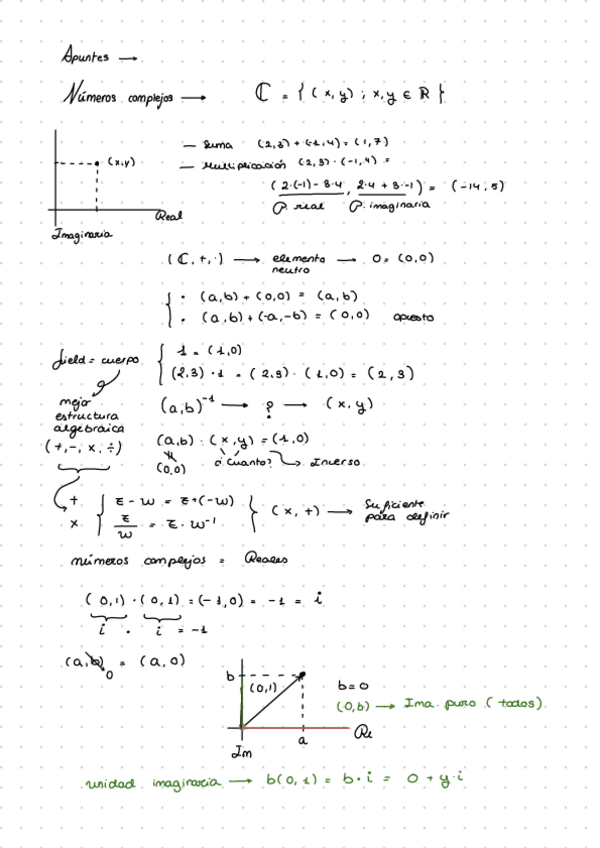 Apuntes →
Números complejos → ℂ = { (x, y) ; x, y ∈ ℝ }
(x,y)
Real
Imaginaria
— Suma (2,3) + (-1,4) = (1,7)
— Multiplicación (2,3) · (-1,4) =
(2·(-1) - 3·4, 2·4 + 3·-1) = (-14, 5)
P. real P. imaginaria
(ℂ, +, ·) → elemento neutro → 0 = (0,0)
{ · (a,b) + (0,0) = (a,b)
· (a,b) + (-a,-b) = (0,0) opuesto
field = cuerpo { 1 = (1,0)
(2,3) · 1 = (2,3) · (1,0) = (2,3)
mejor
estructura
algebráica
(+, -, x, ÷)
(a,b)⁻¹ → ? → (x,y)
(a,b) · (x,y) = (1,0)
(0,0) ¿Cuanto? → Inverso
+ { z - w = z + (-w) } (x, +) → Suficiente
x z/w = z · w⁻¹ para definir
números complejos = Reales
(0,1) · (0,1) = (-1,0) = -1 = i
i · i = -1
(a,b) = (a,0)
0
b
(0,1)
a
Re
Im
b=0
(0,b) → Ima. puro (todos)
unidad imaginaria → b(0,1) = b·i = 0 + y·i